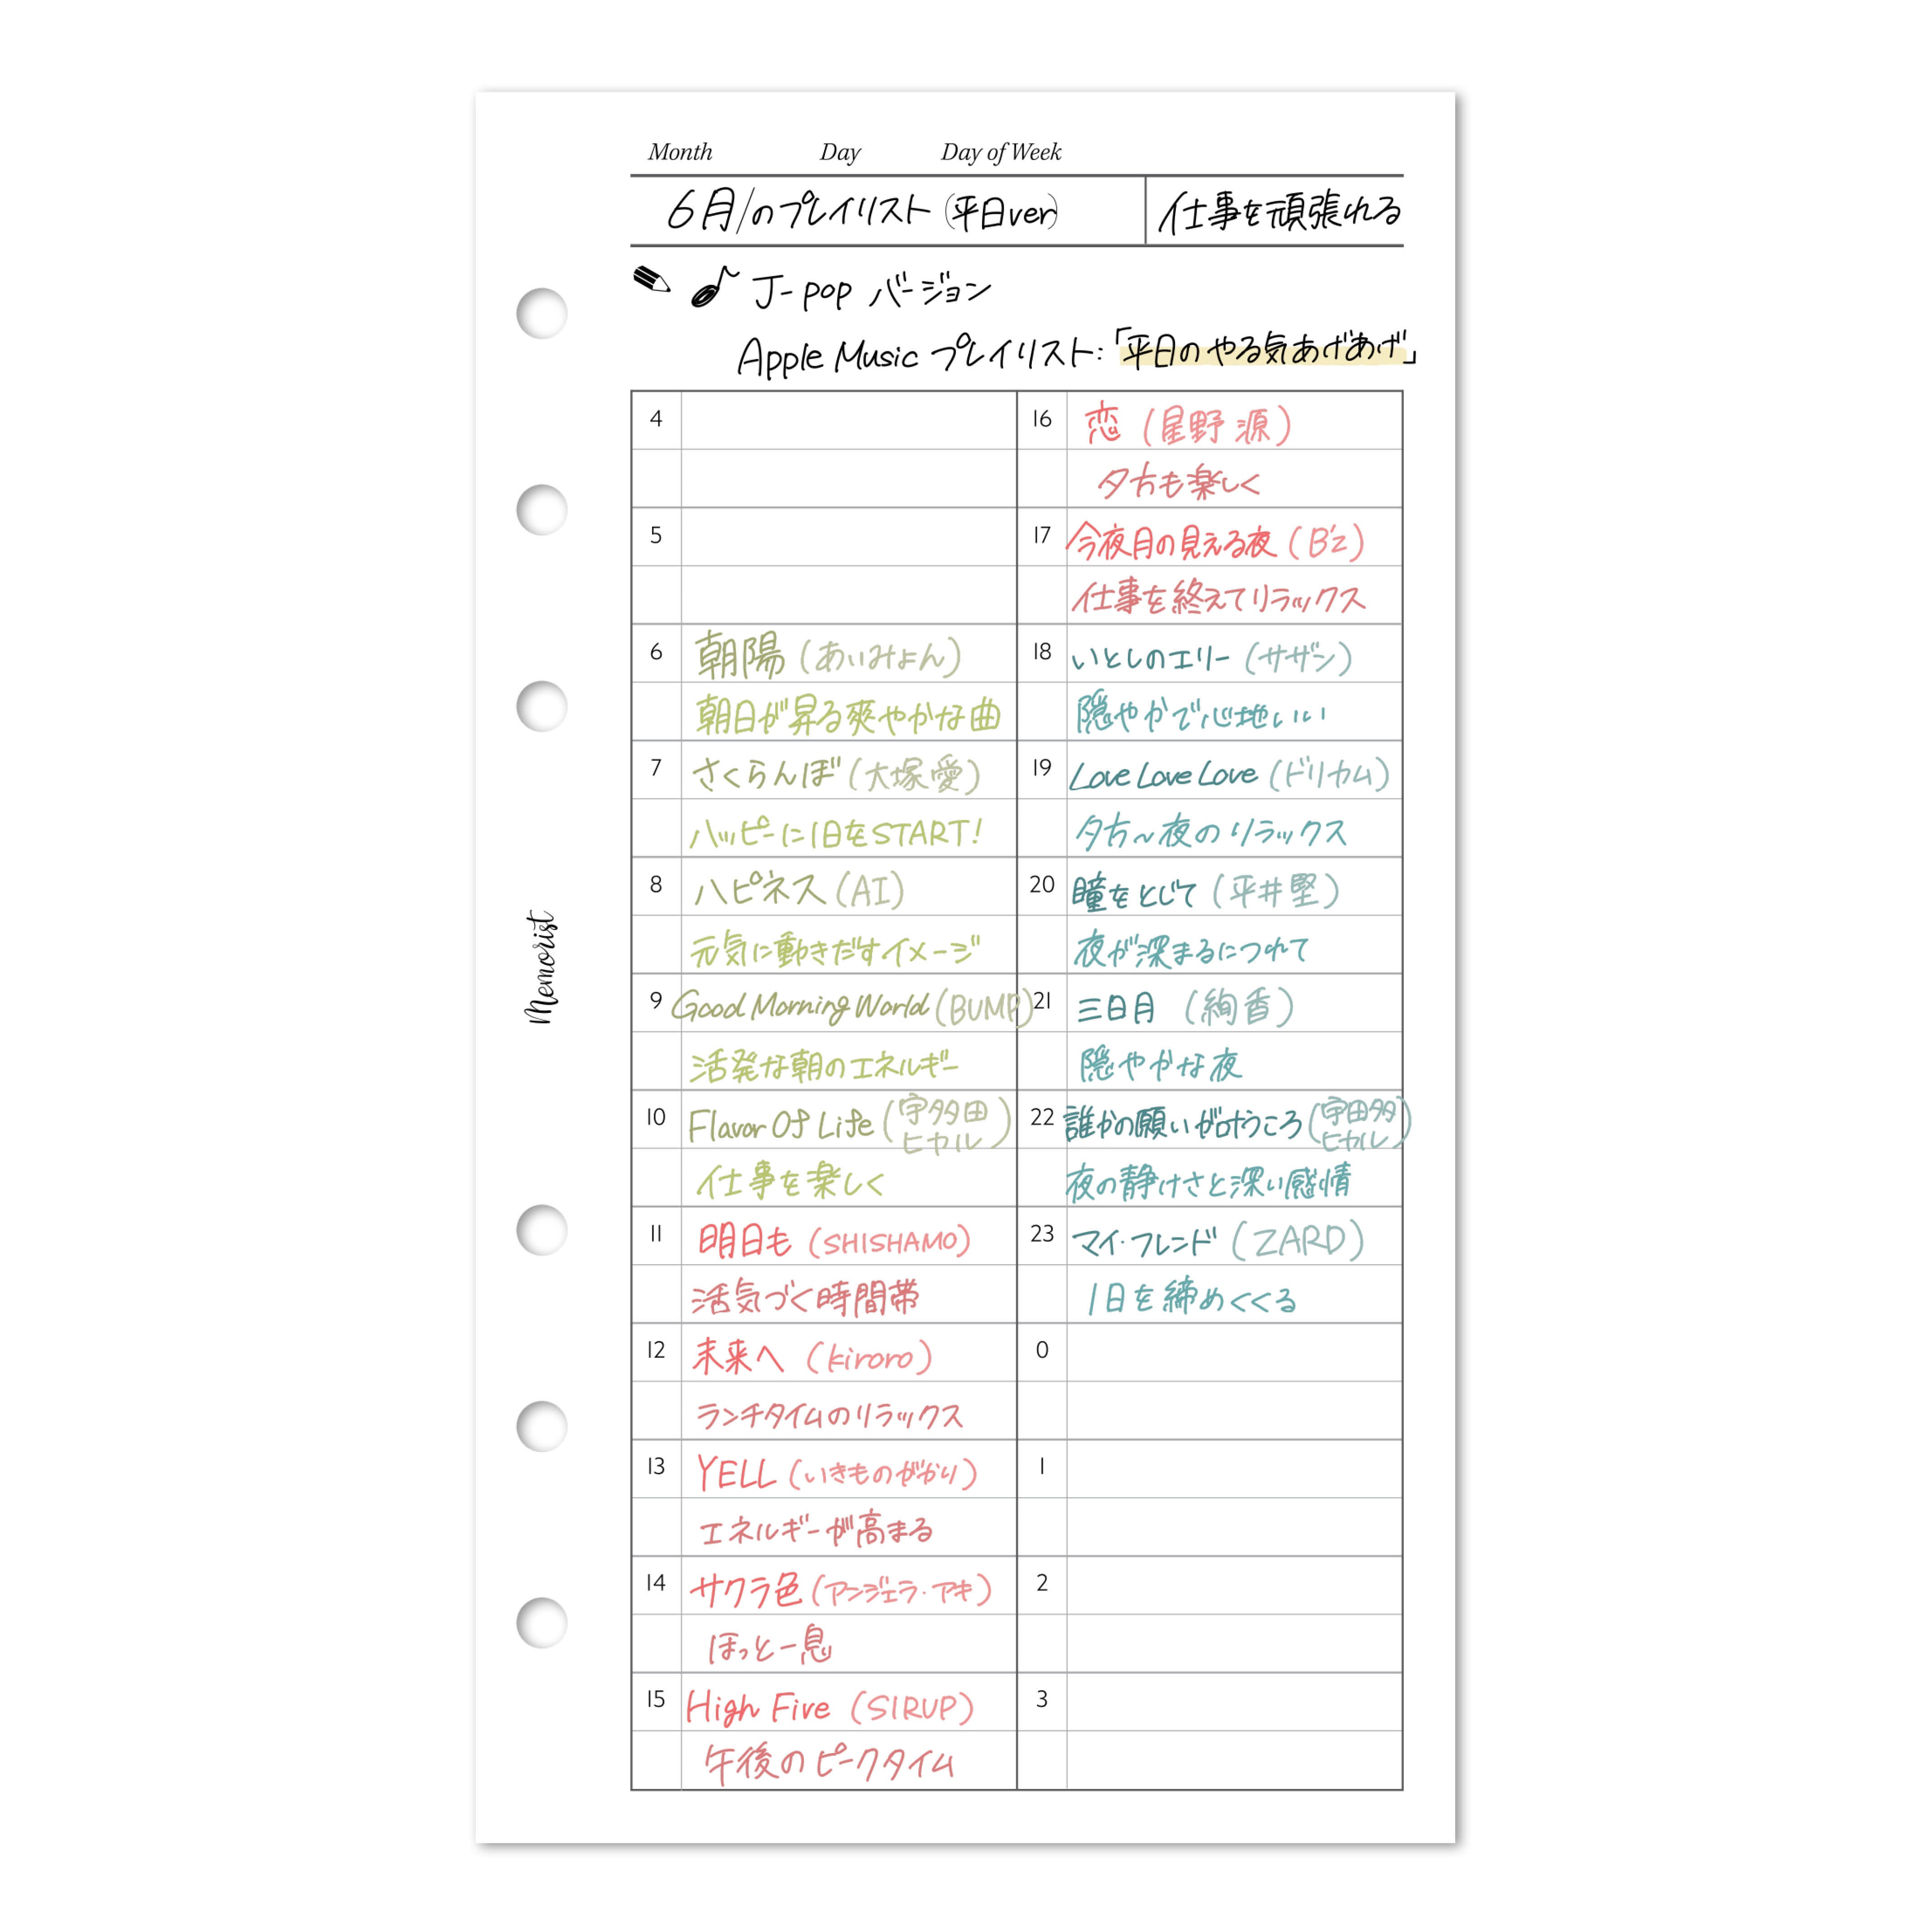 Month Day Day of Week
6月/のプレイリスト(平日ver) 仕事を頑張れる
J-pop バージョン
Apple Music プレイリスト:「平日のやる気あげあげ」
4
5
6 朝陽(あいみょん)
朝日が昇る爽やかな曲
7 さくらんぼ(大塚愛)
ハッピーに1日をSTART!
8 ハピネス(AI)
元気に動きだすイメージ
9 Good Morning World(BUMP)
活発な朝のエネルギー
10 Flavor Of Life(宇多田ヒカル)
仕事を楽しく
11 明日も(SHISHAMO)
活気づく時間帯
12 未来へ(kiroro)
ランチタイムのリラックス
13 YELL(いきものがかり)
エネルギーが高まる
14 サクラ色(アンジェラ・アキ)
ほっと一息
15 High Five(SIRUP)
午後のピークタイム
16 恋(星野源)
夕方も楽しく
17 今夜月の見える夜(B'z)
仕事を終えてリラックス
18 いとしのエリー(サザン)
隠やかで心地いい
19 Love Love Love(ドリカム)
夕方~夜のリラックス
20 瞳をとじて(平井堅)
夜が深まるにつれて
21 三日月(絢香)
隠やかな夜
22 誰かの願いが叶うころ(宇田多ヒカル)
夜の静けさと深い感情
23 マイ・フレンド(ZARD)
1日を締めくくる
0
1
2
3
Memorist